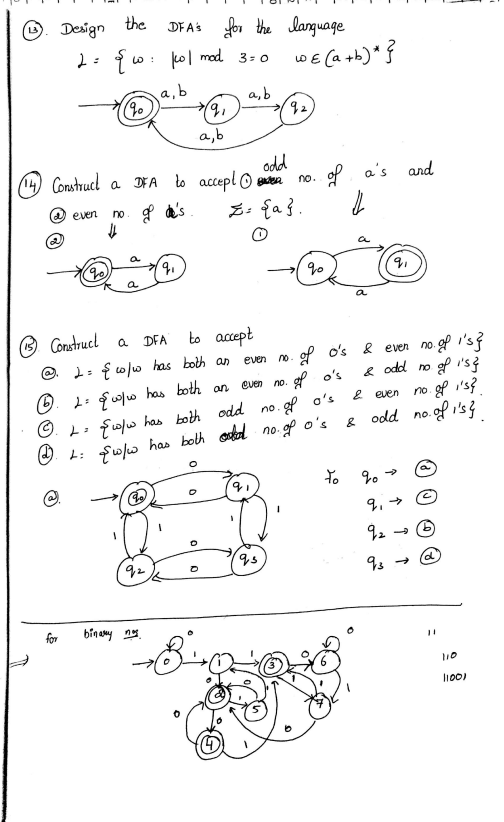 (13). Design the DFA's for the language
L = { w : |w| mod 3 = 0 w ∈ (a+b)* }
q0 a,b q1 a,b q2
a,b
(14) Construct a DFA to accept (1) odd no. of a's and
(2) even no. of a's. Σ = {a}. ⇓
(2) ⇓ (1)
q0 a q1 a
q0 a q1 a
(15) Construct a DFA to accept
(a). L = { w/w has both an even no. of 0's & even no. of 1's}
(b). L = { w/w has both an even no. of 0's & odd no of 1's}
(c). L = { w/w has both odd no. of 0's & even no. of 1's}.
(d). L: {w/w has both odd no. of 0's & odd no. of 1's}.
(a). q0 0 q1 0
1 1 1 1
q2 0 q3 0
q0 → (a)
q1 → (c)
q2 → (b)
q3 → (d)
for binary nos.
⇒ 0 1 3 6
2 5 7
4
11
110
11001